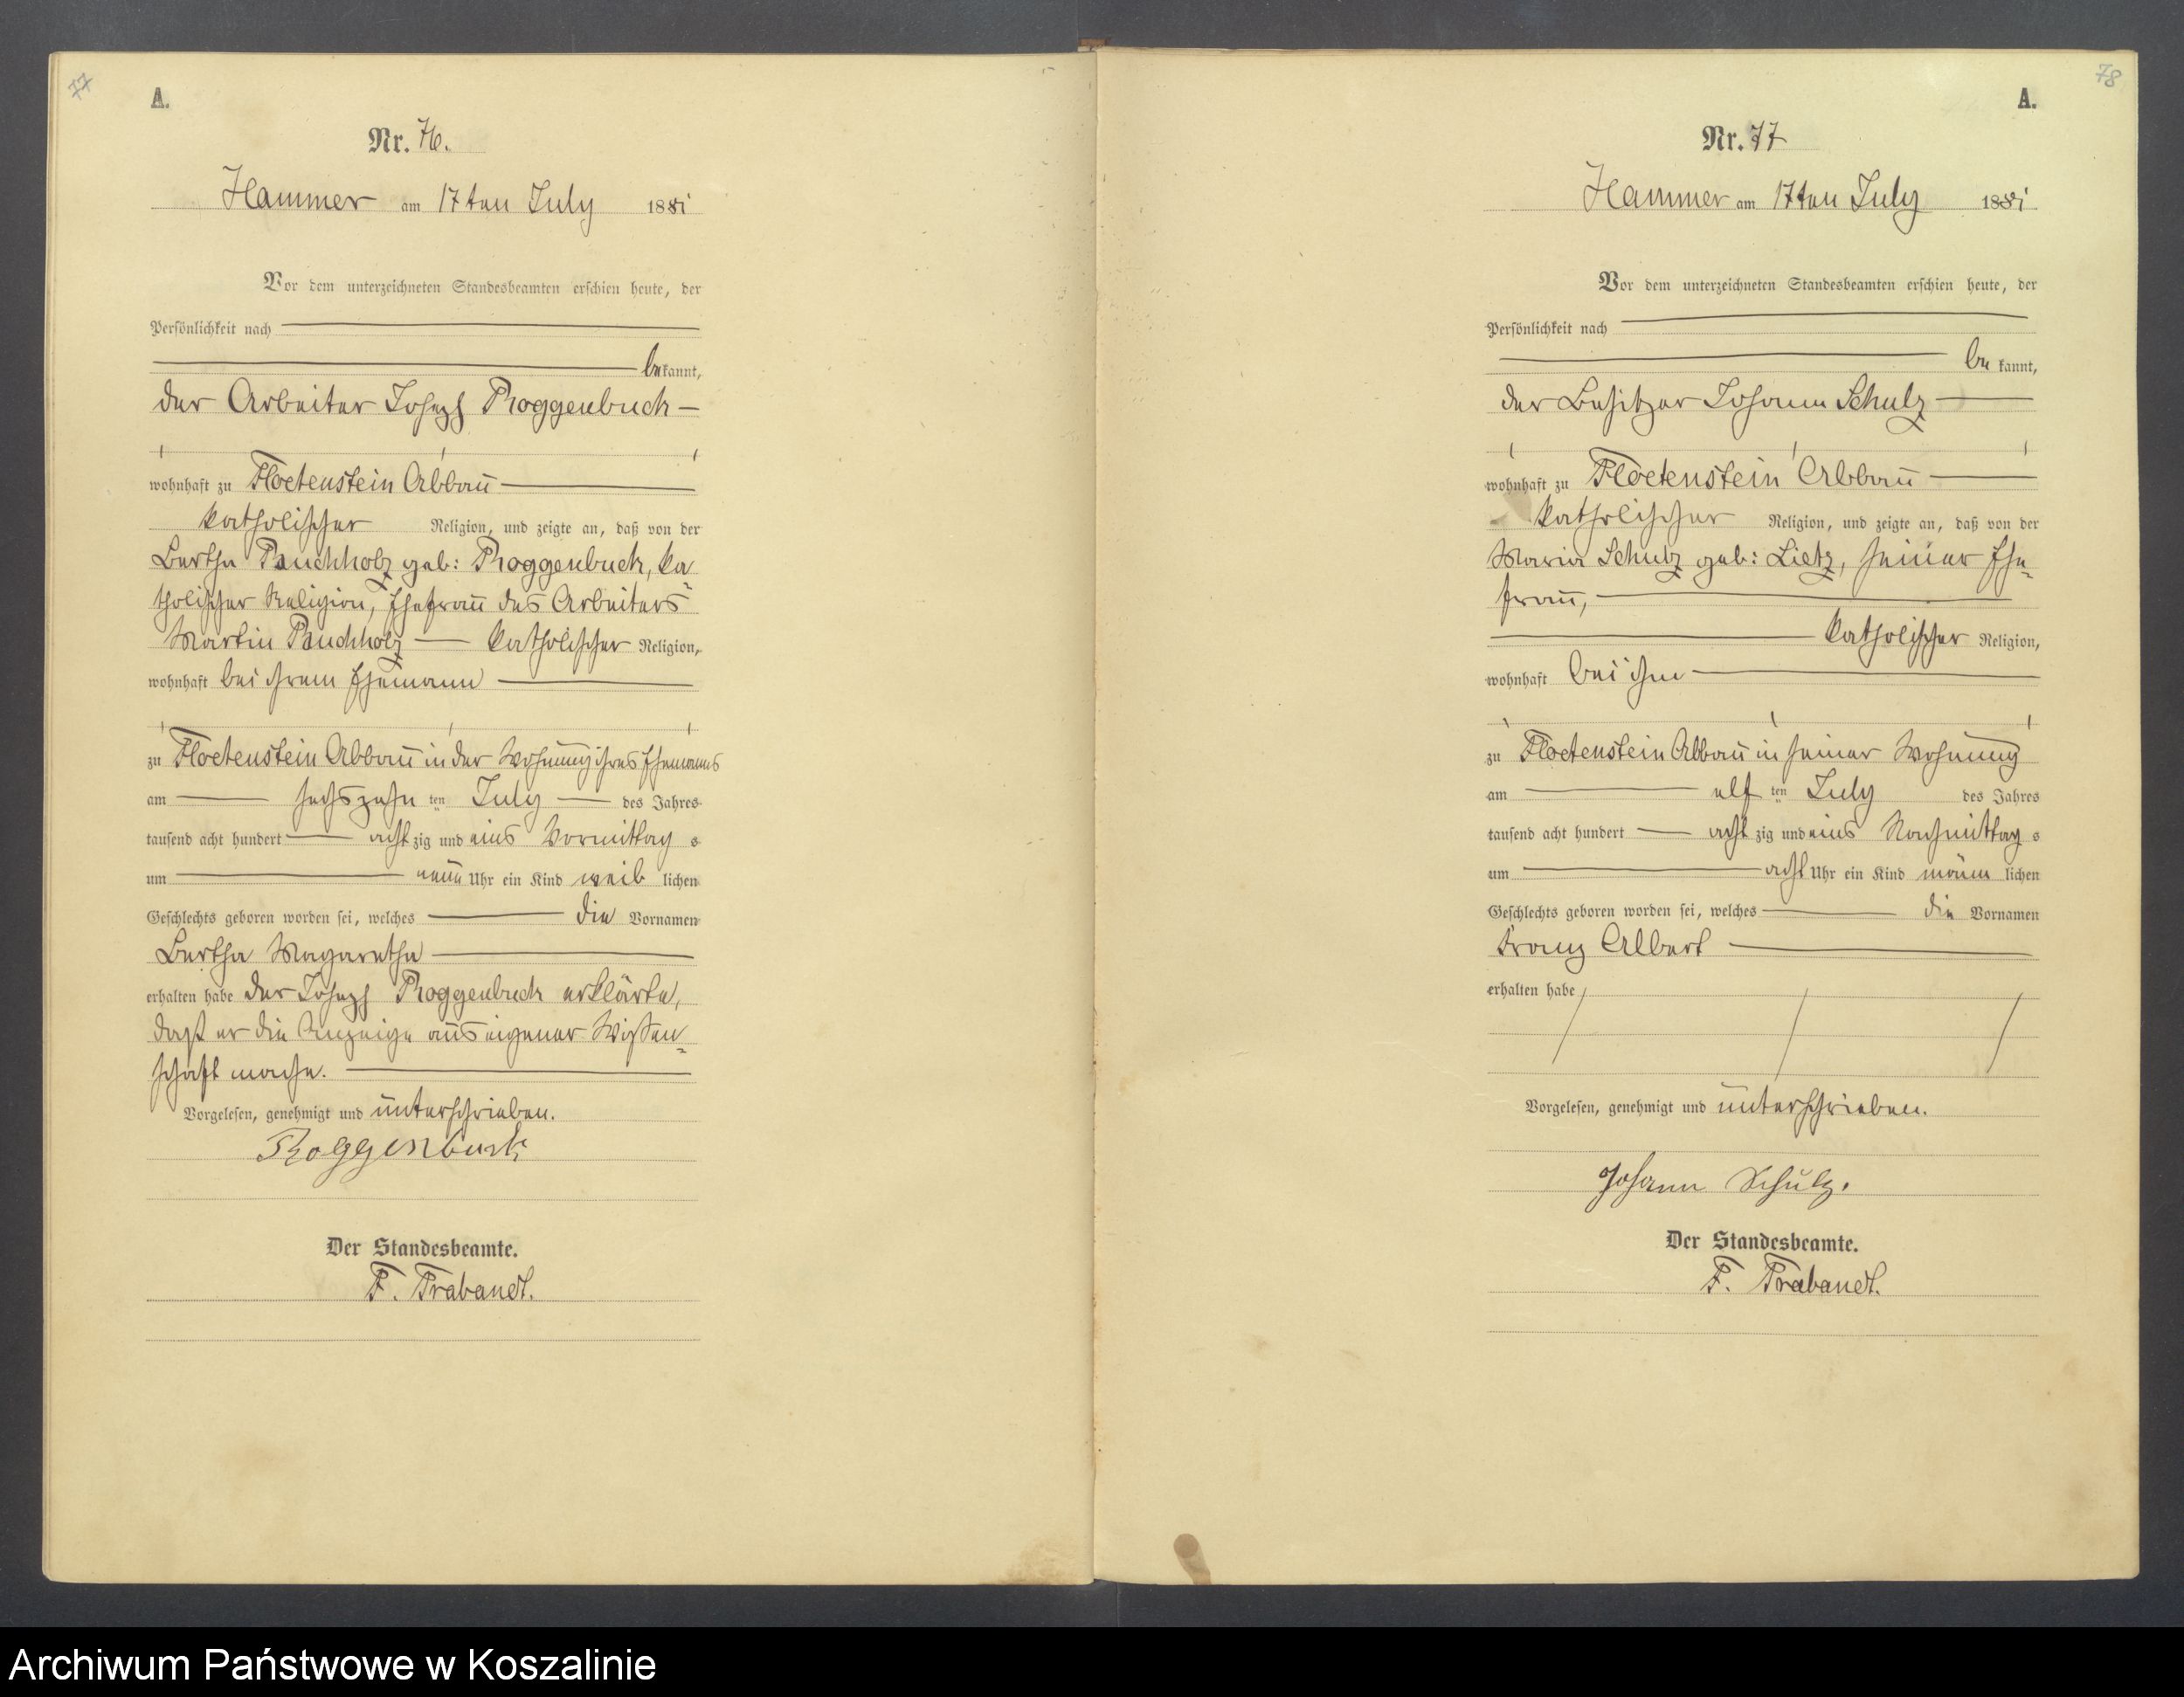 77
A.
Nr. 76.
Hammer am 17ten July 1881
Vor dem unterzeichneten Standesbeamten erschien heute, der
Persönlichkeit nach
bekannt,
der Arbeiter Joseph Roggenbuck
wohnhaft zu Floetenstein Abbau
katholischer Religion, und zeigte an, daß von der
Bertha geb: Roggenbuck, ka
tholischer Religion, Ehefrau des Arbeiters
Martin katholischer Religion,
wohnhaft bei ihrem Ehemann
zu Floetenstein Abbau in der Wohnung ihres Ehemanns
am sechszehn ten July des Jahres
tausend acht hundert acht zig und eins Vormittag s
um neun Uhr ein Kind weib lichen
Geschlechts geboren worden sei, welches die Vornamen
Bertha Magaretha
erhalten habe der Joseph Roggenbuck erklärte,
daß er die Anzeige aus eigener Wissen-
schaft mache.
Vorgelesen, genehmigt und unterschrieben.
Roggenbuck
Der Standesbeamte.
F. Trabandt.
78
A.
Nr. 77
Hammer am 17ten July 1881
Vor dem unterzeichneten Standesbeamten erschien heute, der
Persönlichkeit nach
be kannt,
der Besitzer Johann Schulz
wohnhaft zu Floetenstein Abbau
katholischer Religion, und zeigte an, daß von der
Maria Schulz geb: Lietz, seiner Ehe-
frau,
katholischer Religion,
wohnhaft bei ihm
zu Floetenstein Abbau in seiner Wohnung
am elf ten July des Jahres
tausend acht hundert acht zig und eins Nachmittag s
um acht Uhr ein Kind männ lichen
Geschlechts geboren worden sei, welches die Vornamen
Franz Albert
erhalten habe
Vorgelesen, genehmigt und unterschrieben.
Johann Schulz.
Der Standesbeamte.
F. Trabandt.
Archiwum Państwowe w Koszalinie